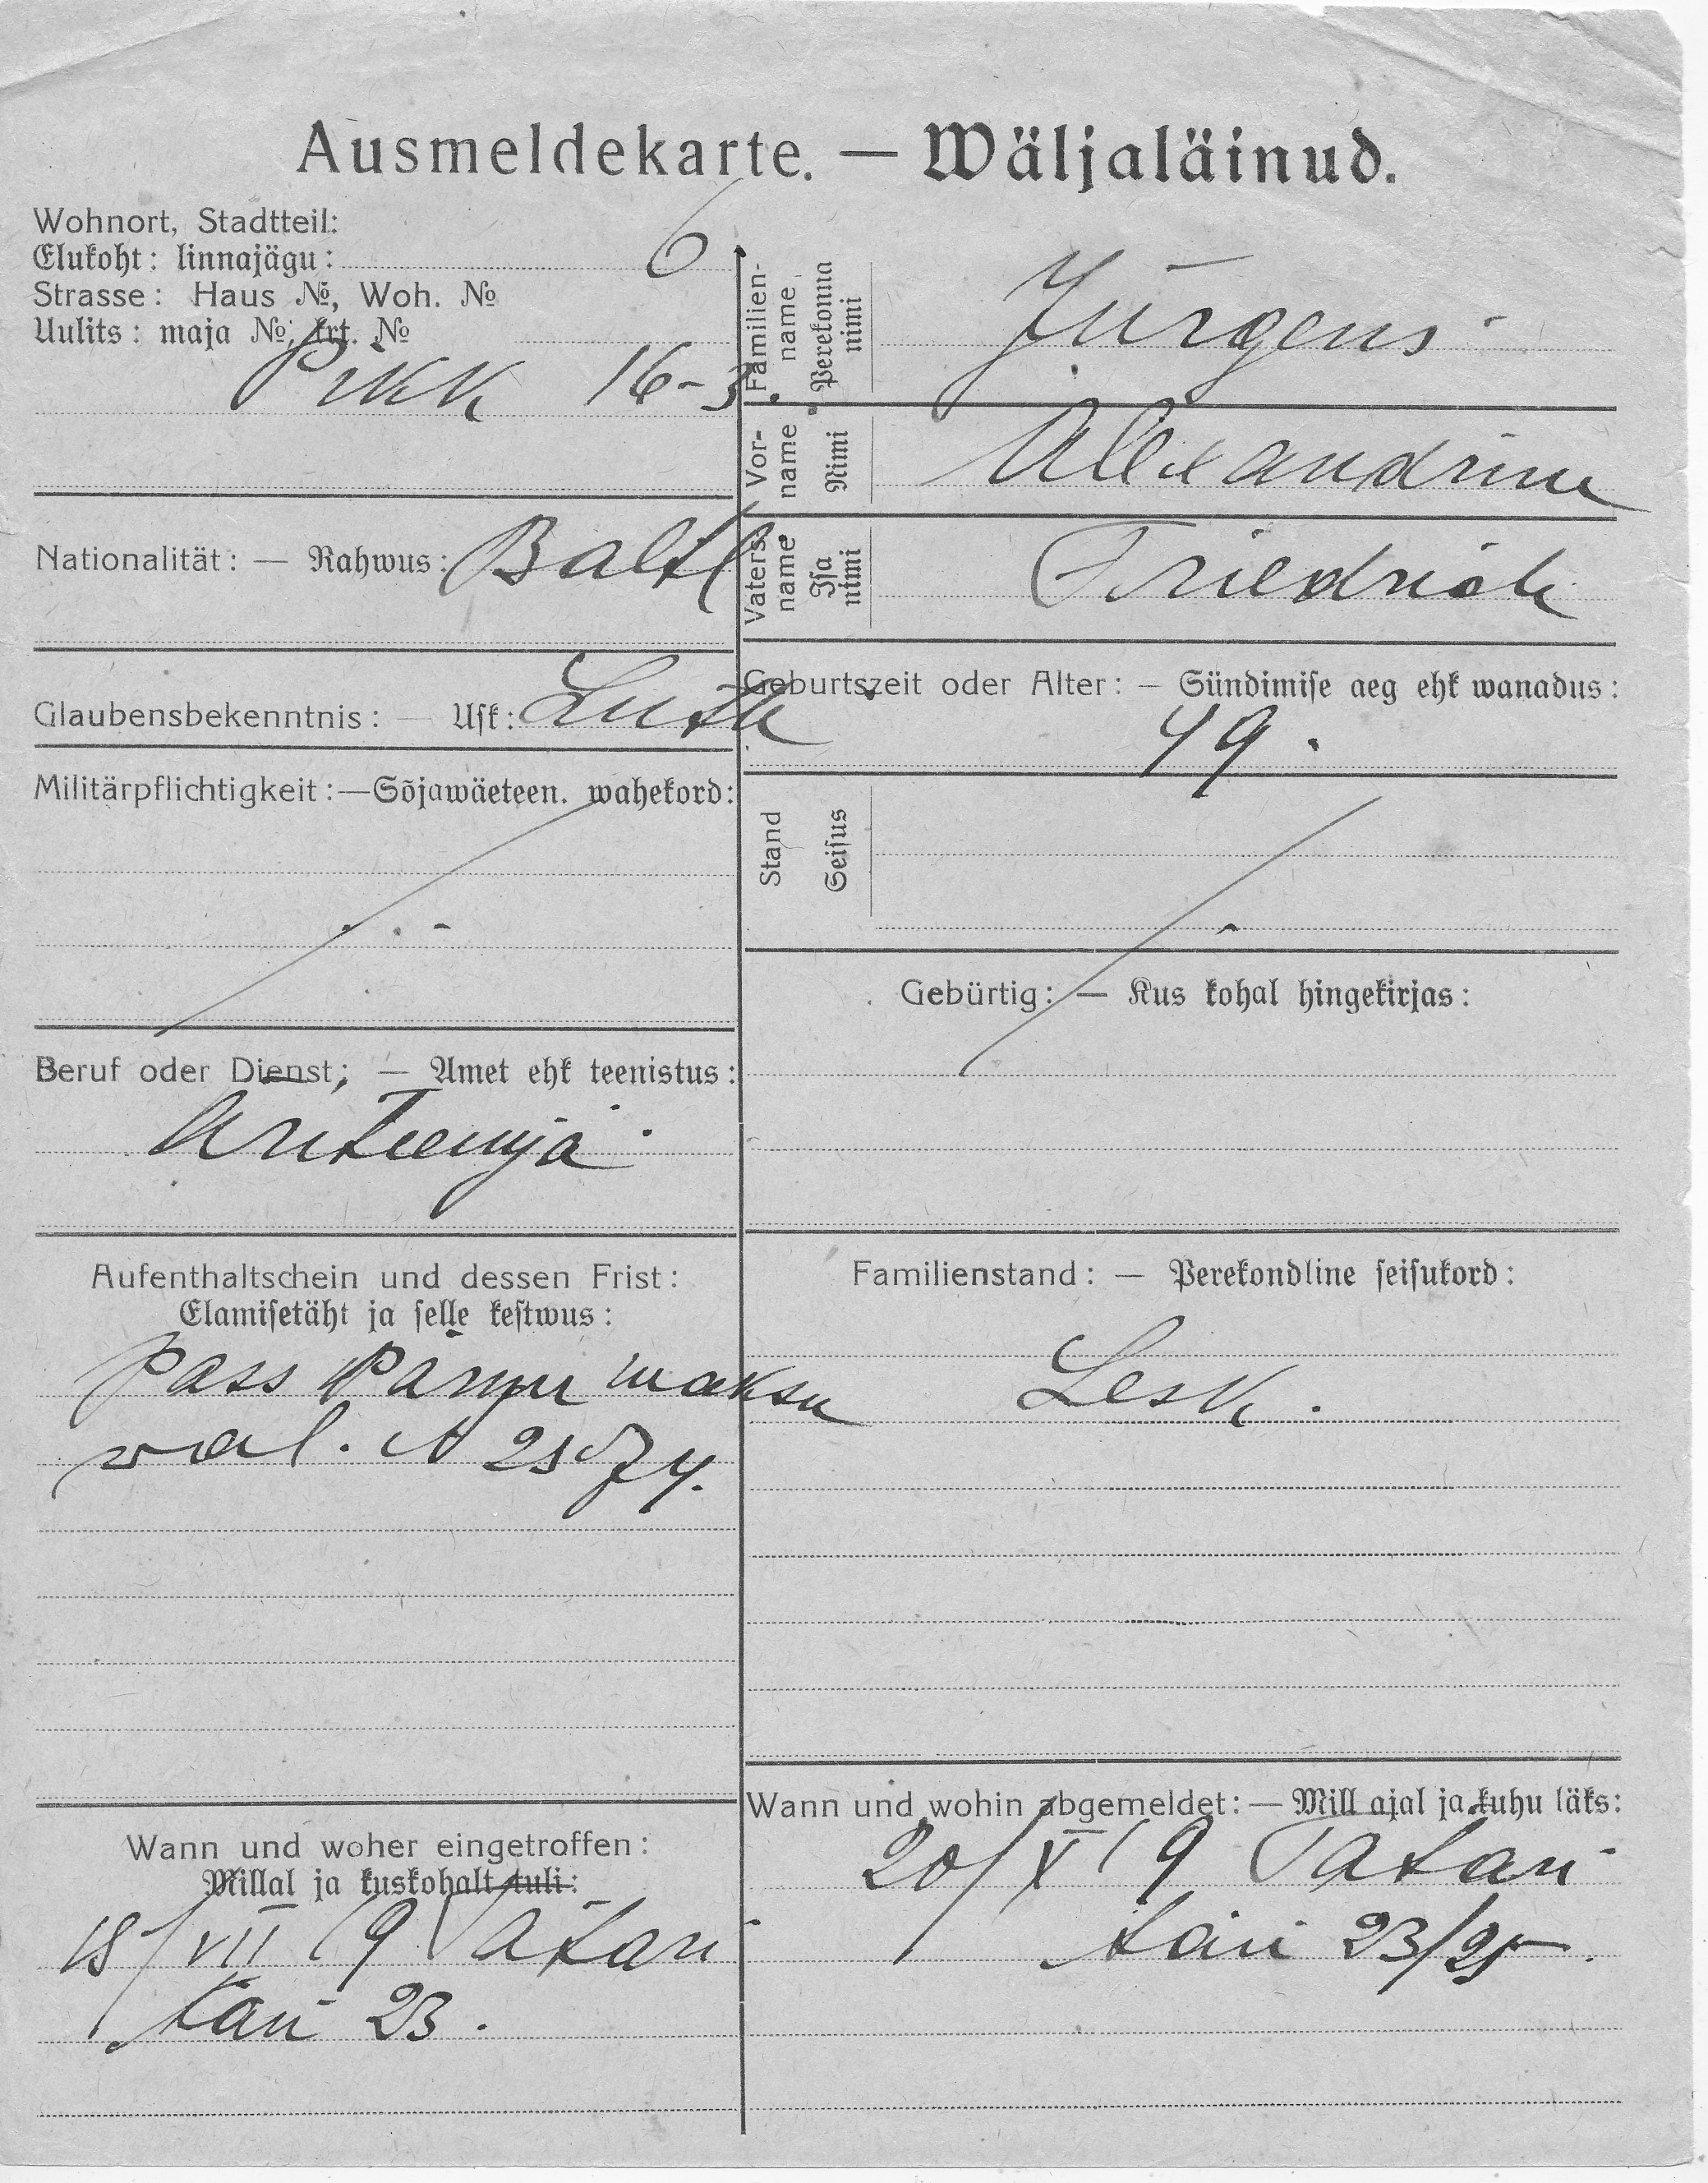 Ausmeldekarte. — Wäljaläinud.
Wohnort, Stadtteil:
Elukoht: linnajägu: 6
Strasse: Haus №, Woh. №
Uulits: maja №, krt. №
Pikk 16-3.
Nationalität: — Rahwus: Baltl
Glaubensbekenntnis: — Usk: Luth
Militärpflichtigkeit:—Sõjawäeteen. wahekord:
Beruf oder Dienst: — Amet ehk teenistus:
Aufenthaltschein und dessen Frist:
Elamisetäht ja selle kestwus:
Pass Pärnu maksu
wal. №
Wann und woher eingetroffen:
Millal ja kuskohalt tuli:
18/VII 19 Tatari
tän 23.
Familien-name Perekonna nimi
Jürgens
Vor-name Nimi
Alexandrine
Vaters-name Isa nimi
Friedrich
Geburtszeit oder Alter: — Sündimise aeg ehk wanadus:
49.
Stand Seisus
Gebürtig: — Kus kohal hingekirjas:
Familienstand: — Perekondline seisukord:
Lesk.
Wann und wohin abgemeldet: — Mill ajal ja kuhu läks:
20/X 19 Tatari
tän 23/25.